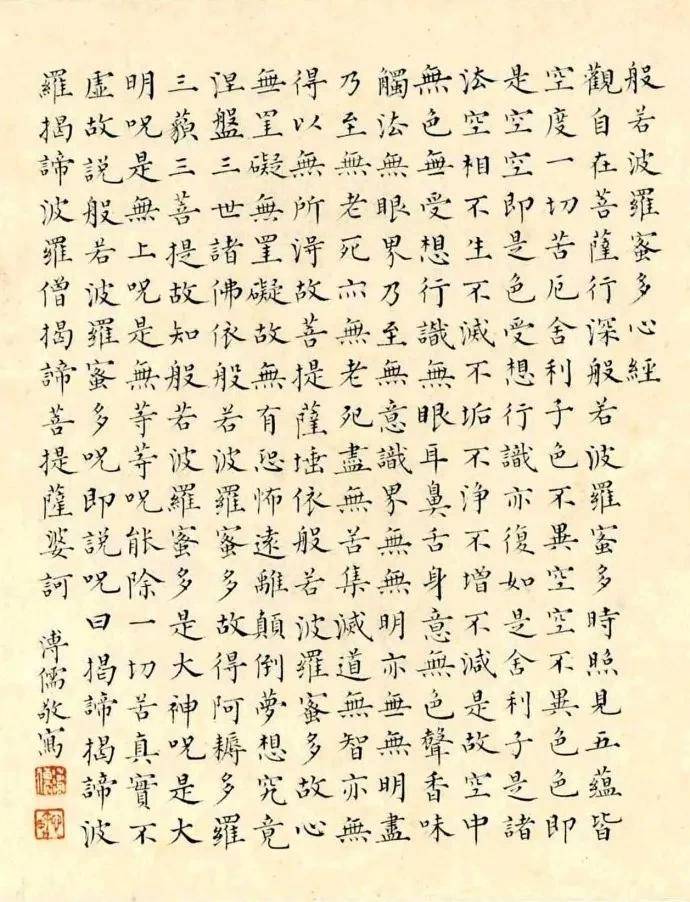 般若波羅蜜多心經
觀自在菩薩行深般若波羅蜜多時照見五蘊皆
空度一切苦厄舍利子色不異空空不異色色即
是空空即是色受想行識亦復如是舍利子是諸
法空相不生不滅不垢不淨不增不減是故空中
無色無受想行識無眼耳鼻舌身意無色聲香味
觸法無眼界乃至無意識界無無明亦無無明盡
乃至無老死亦無老死盡無苦集滅道無智亦無
得以無所得故菩提薩埵依般若波羅蜜多故心
無罣礙無罣礙故無有恐怖遠離顛倒夢想究竟
涅盤三世諸佛依般若波羅蜜多故得阿耨多羅
三藐三菩提故知般若波羅蜜多是大神呪是大
明呪是無上呪是無等等呪能除一切苦真實不
虛故說般若波羅蜜多呪即說呪曰揭諦揭諦波
羅揭諦波羅僧揭諦菩提薩婆訶 溥儒敬寫